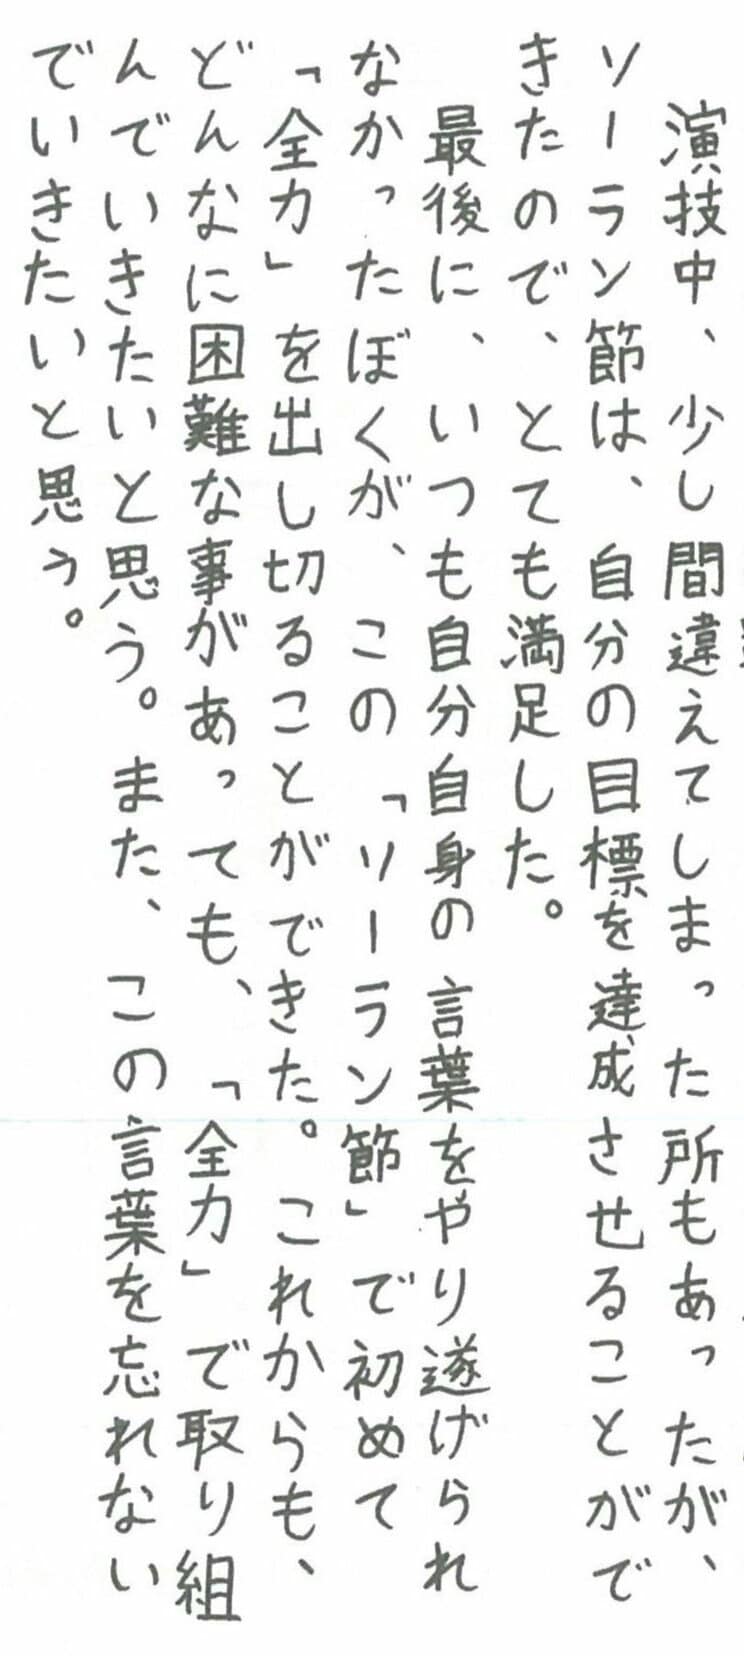 演技中、少し間違えてしまった所もあったが、
ソーラン節は、自分の目標を達成させることがで
きたので、とても満足した。
最後に、いつも自分自身の言葉をやり遂げられ
なかったぼくが、この「ソーラン節」で初めて
「全力」を出し切ることができた。これからも、
どんなに困難な事があっても、「全力」で取り組
んでいきたいと思う。また、この言葉を忘れない
でいきたいと思う。